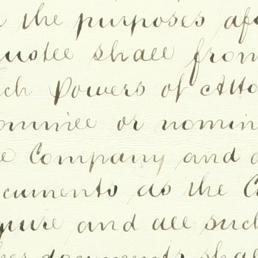 the purposes afo
rustee shall from
ch Powers of Atto
ominee or nomin
e Company and
ocuments as the C
quire and all such
her documents shall